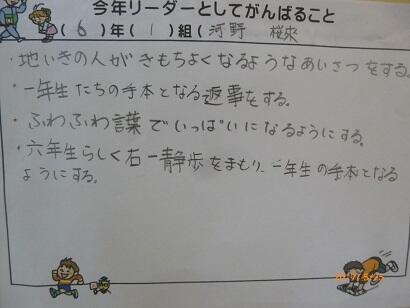 今年リーダーとしてがんばること
(6)年(1)組(河野 桜來)
・地いきの人がきもちよくなるようなあいさつをする。
・一年生たちの手本となる返事をする。
・ふわふわ言葉でいっぱいになるようにする。
・六年生らしく右一静歩をまもり、一年生の手本となる
ようにする。